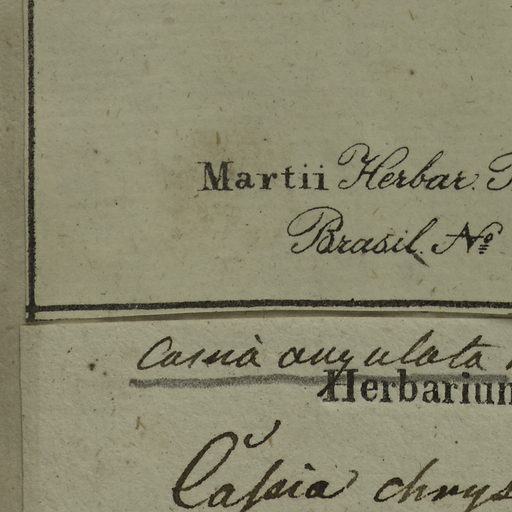 Martii Herbar.
Brasil. No
Cassia angulata
Herbarium
Cassia chrys